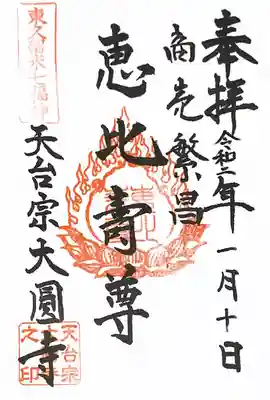 奉拝
令和二年一月十日
商売繁昌
恵比壽尊
東久留米七福神
天台宗大圓寺
天台宗
之印